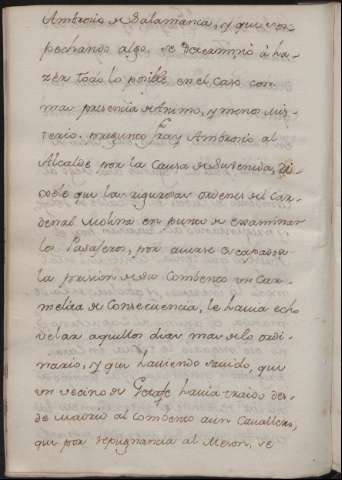 Ambrosio de Salamanca, y que sos-
pechando algo, se determinò à ha-
zer todo lo posible en el caso con
mas presencia de Animo, y menos mis-
terio. preguntò Fray Ambrosio al
Alcalde por la causa de su venida, di-
xole que las rigurosas ordenes del Car-
denal Molina en punto de examinar
los Pasageros, por averse escapado de
la prision de su Combento un Car-
melita de Consecuencia, le havia echo
velar aquellos dias mas de lo ordi-
nario, y que haviendo savido, que
un vecino de Getafe havia traido des-
de Madrid al Combento a un Cavallero,
que por repugnancia al Meson, se